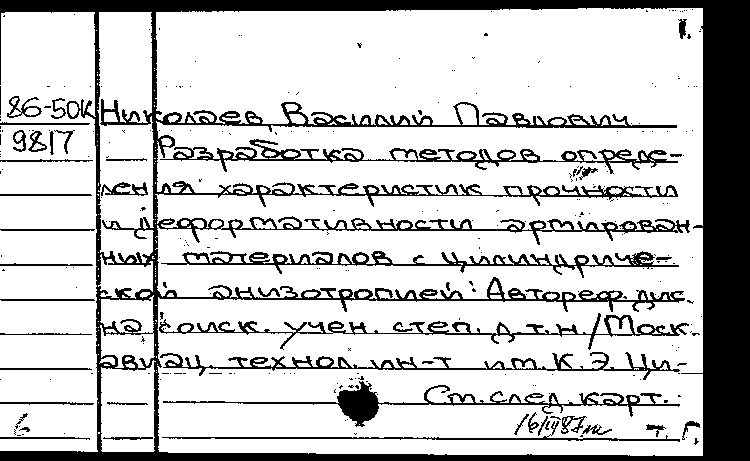 1.
86-50К Николаев, Василий Павлович
9817 Разработка методов опреде-
ления характеристик прочности
и деформативности армирован-
ных материалов с цилиндриче-
ской анизотропией: Автореф. дис.
на соиск. учен. степ. д.т.н./Моск.
авиац. технол. ин-т им. К.Э. Ци-
См. след. карт.
6 т. Г.